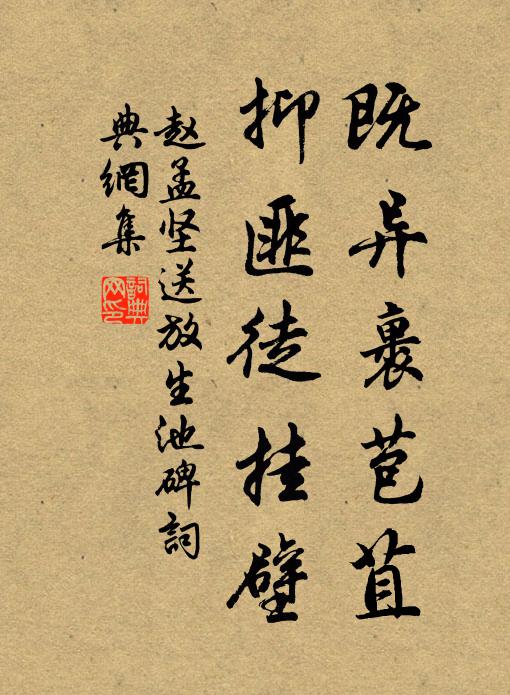 既异裹苞苴
抑匪徒挂壁
赵孟坚送放生池碑詞
典網集
詞典網印